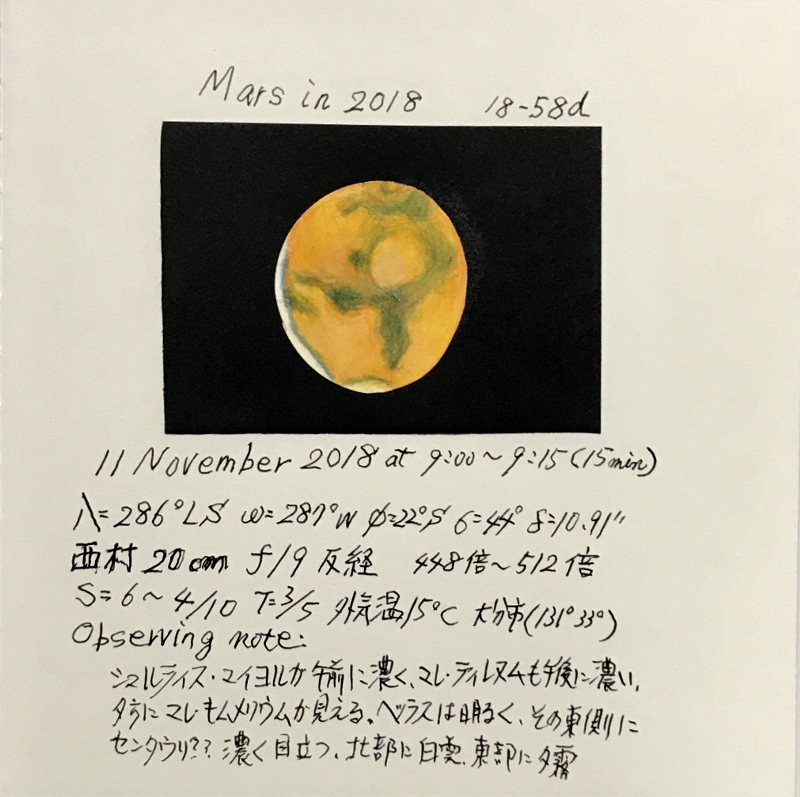 Mars in 2018 18-58d
11 November 2018 at 9:00~9:15 (15min)
λ=286°LS ω=287°W φ=22°S 6=44° δ=10.91"
西村 20cm f/9 反経 448倍~512倍
S=6~4/10 T=3/5 外気温15°C 大分市(131°33°)
Observing note:
シュルティス・マイヨルが午前に濃く、マレ・ティレヌムも午後に濃い、
夕方にマレ・キムメリウムが見える。ヘラスは明るく、その東側に
センタウリ?? 濃く目立つ、北部に白雲、東部に夕霧